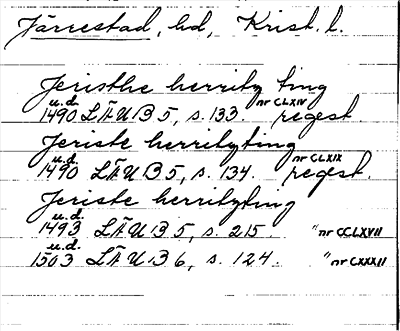 Järrestad, hd, Krist. l.
Jeristhe herritz ting
u.d. nr CLXIV
1490 LÄUB 5, s. 133. regest
Jeriste herritzting
u.d. nr CLXIX
1490 LÄUB 5, s. 134. regest.
Jeriste herritzting
u.d.
1493 LÄUB 5, s. 215. " nr CCLXVII
u.d.
1503 LÄUB 6, s. 124. " nr CXXXII